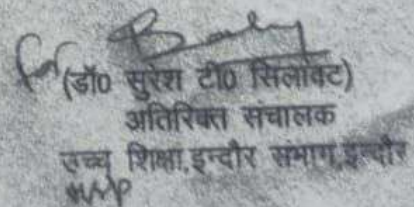 for
(डॉ0 सुरेश टी0 सिलावट)
अतिरिक्त संचालक
उच्च शिक्षा,इन्दौर संभाग,इन्दौर